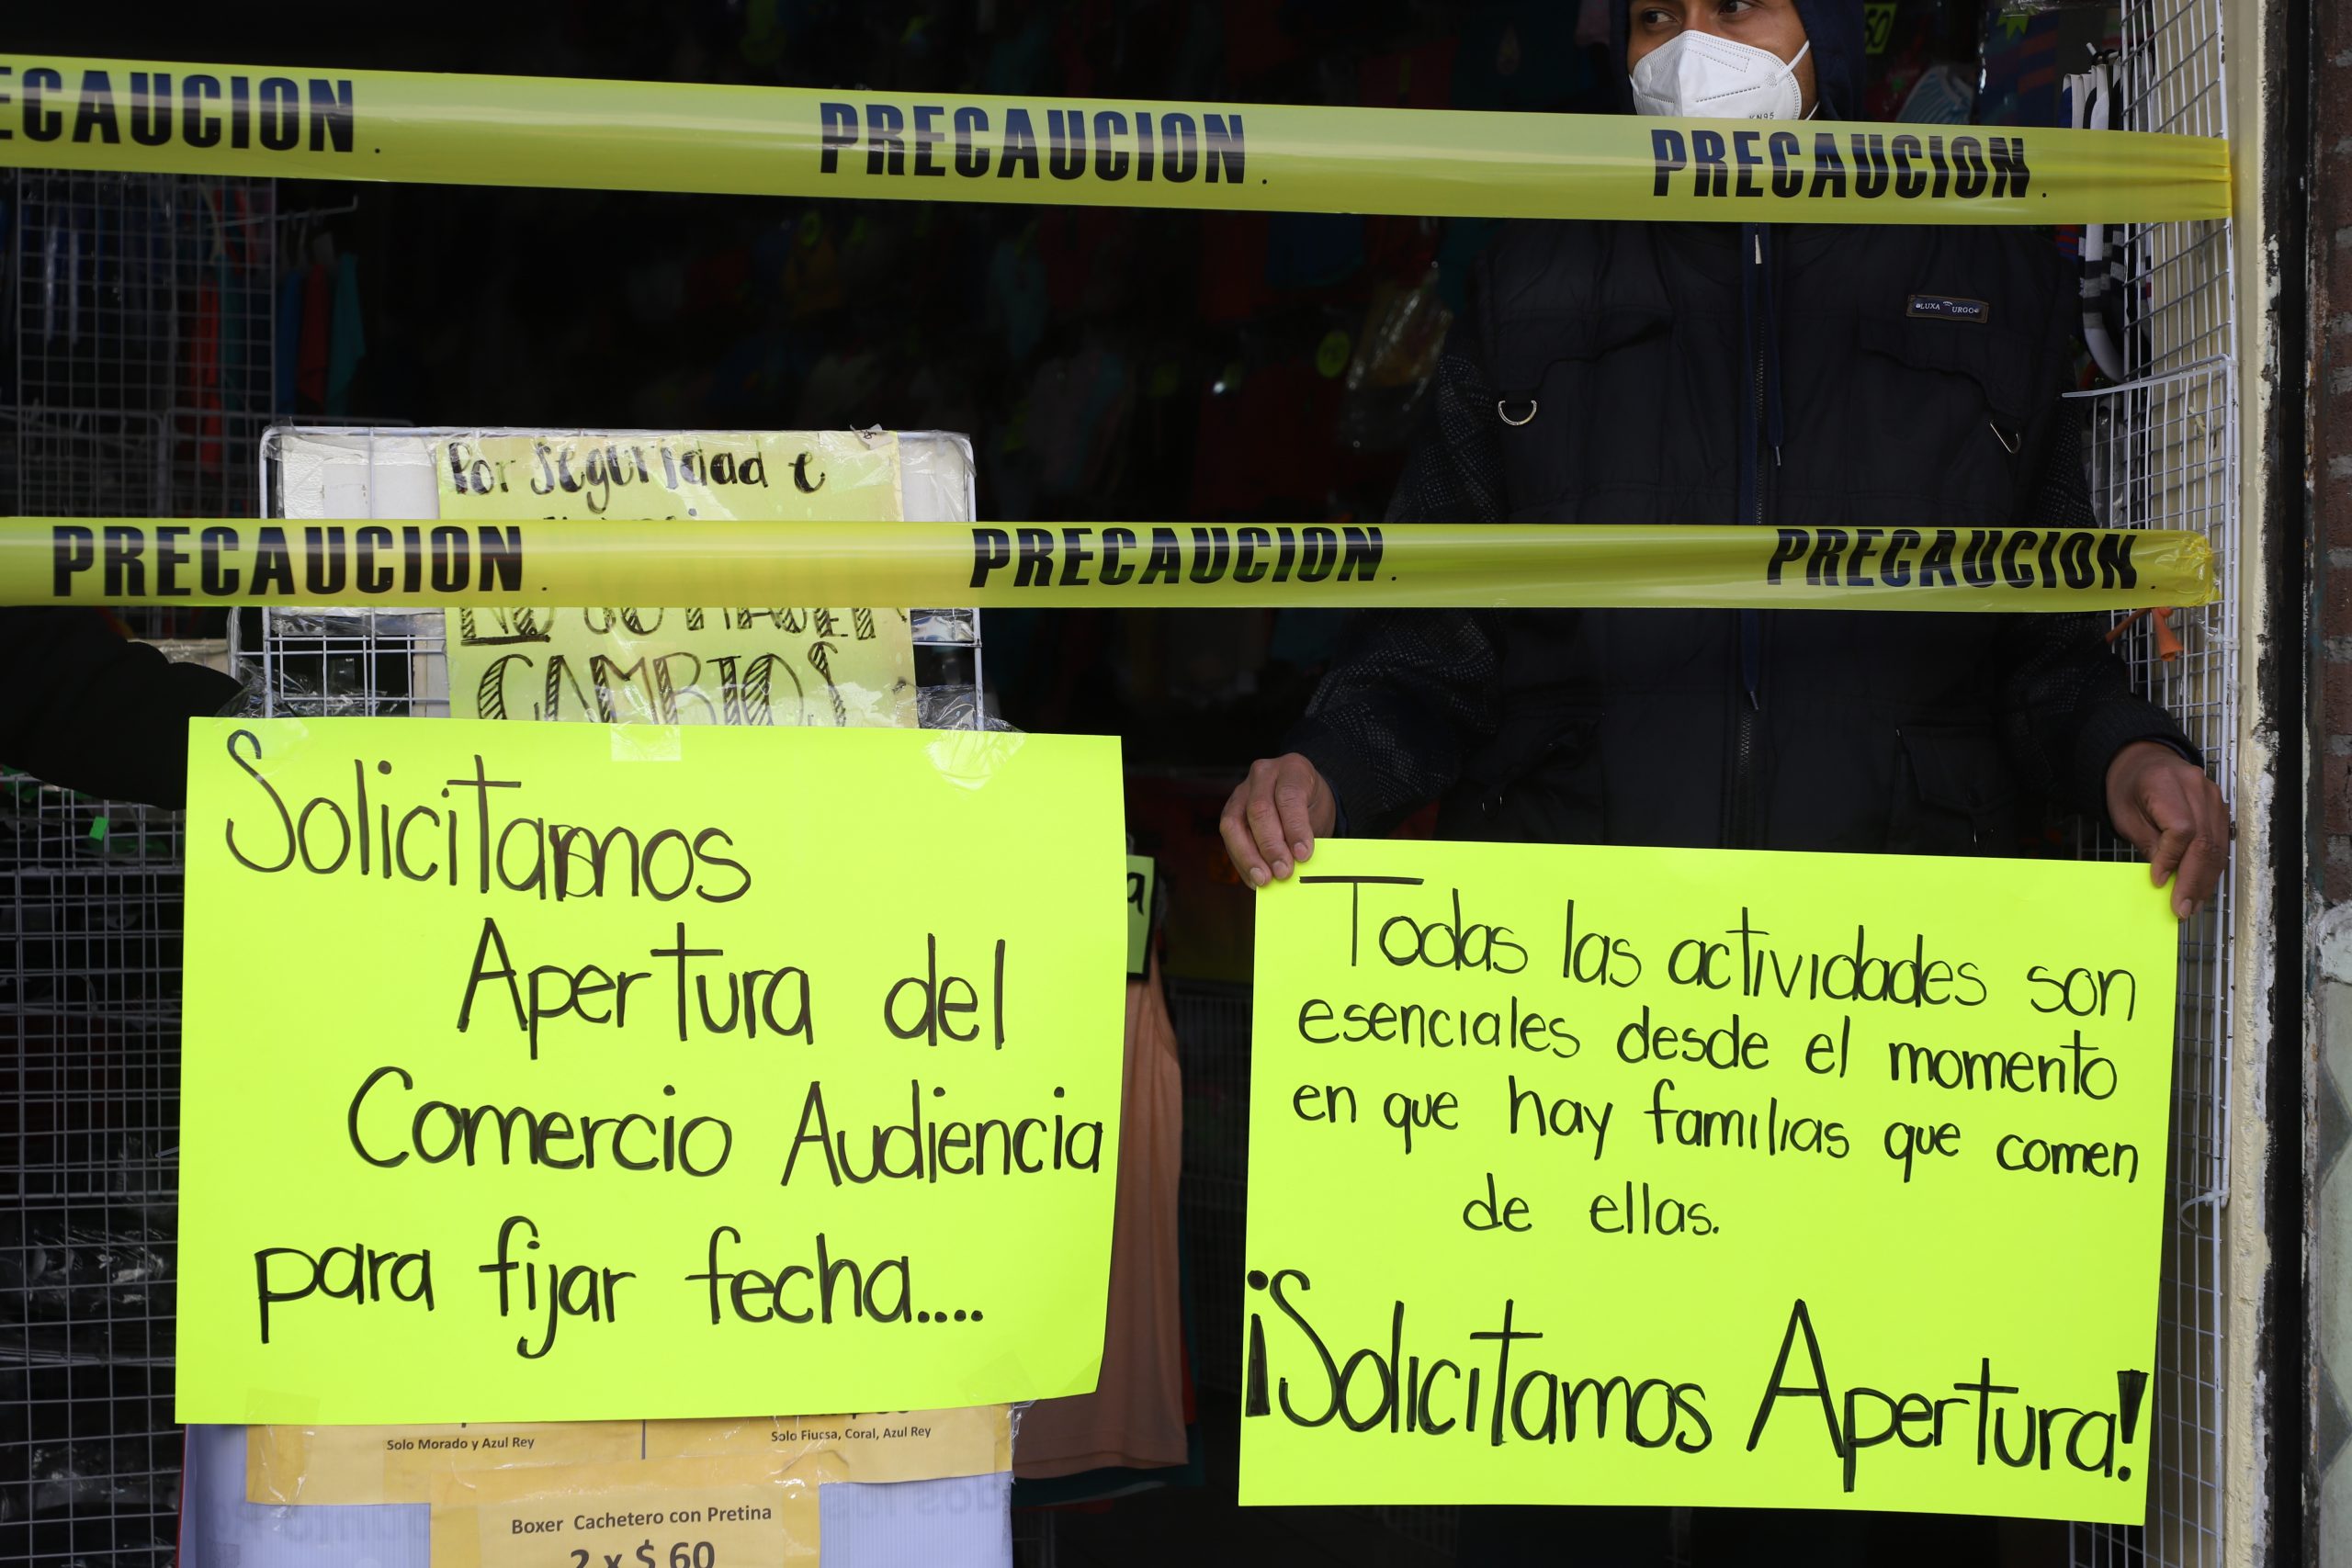 ECAUCION.
PRECAUCION.
PRECAUCION.
KN95
LUXA URGO
50
Por Seguridad e
PRECAUCION.
PRECAUCION.
PRECAUCION.
NO
CAMBIOS
Solicitamos
Apertura del
Comercio Audiencia
para fijar fecha....
a
Todas las actividades son
esenciales desde el momento
en que hay familias que comen
de ellas.
¡Solicitamos Apertura!
Solo Morado y Azul Rey
Solo Fiucsa, Coral, Azul Rey
Boxer Cachetero con Pretina
2 x $ 60